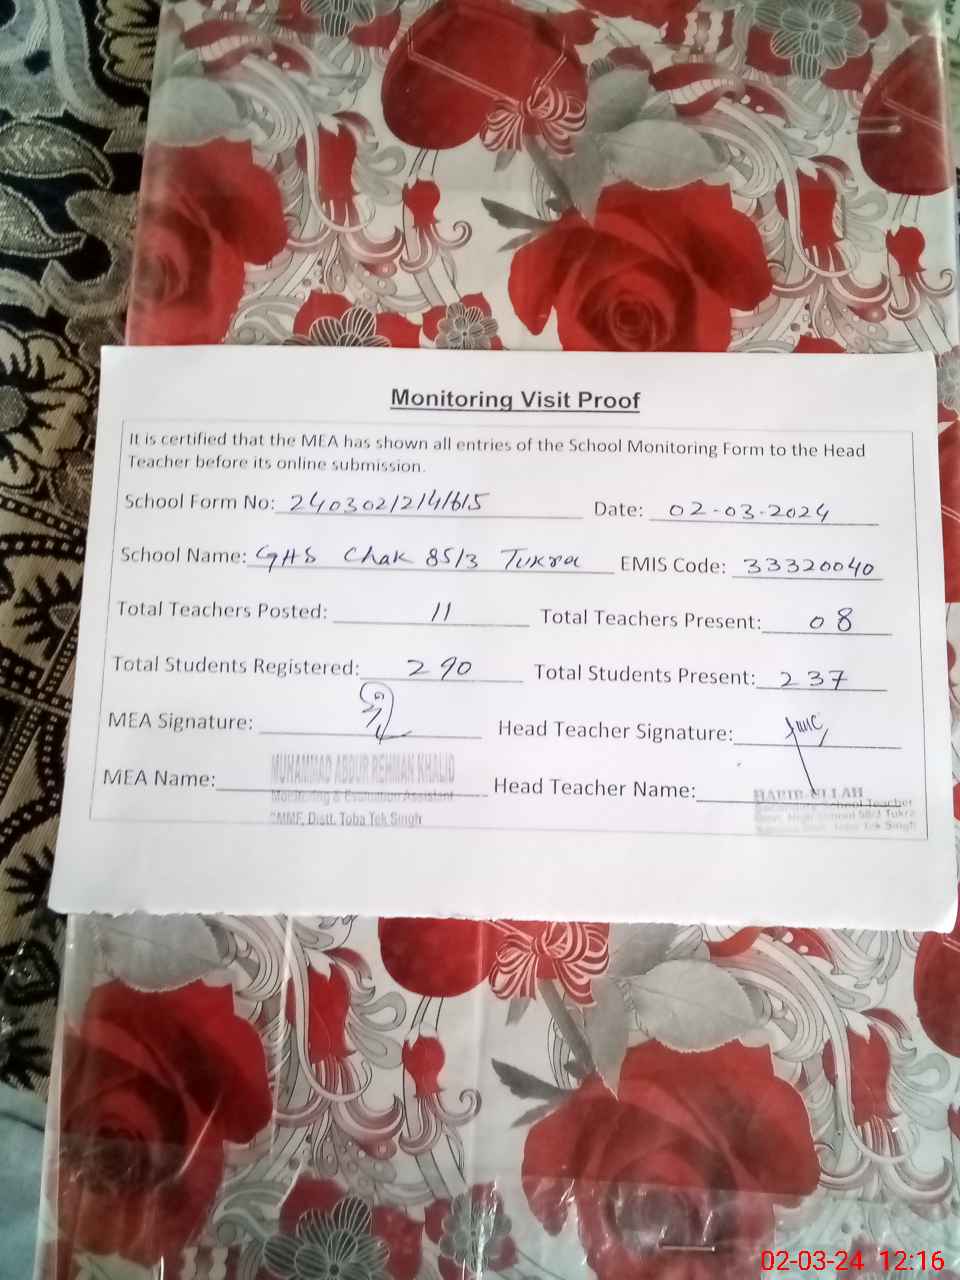 Monitoring Visit Proof
It is certified that the MEA has shown all entries of the School Monitoring Form to the Head
Teacher before its online submission.
School Form No: 240302/2/4/615 Date: 02-03-2024
School Name: GHS Chak 85/3 Tukra EMIS Code: 33320040
Total Teachers Posted: 11 Total Teachers Present: 08
Total Students Registered: 290 Total Students Present: 237
MEA Signature: Head Teacher Signature:
MEA Name: MUHAMMAD ABDUR REHMAN KHALID Head Teacher Name: HABIB-ULLAH
Monitoring & Evaluation Assistant Secondary School Teacher
CMMF, Distt. Toba Tek Singh Govt. High School Tukra
Toba Tek Singh
02-03-24 12:16